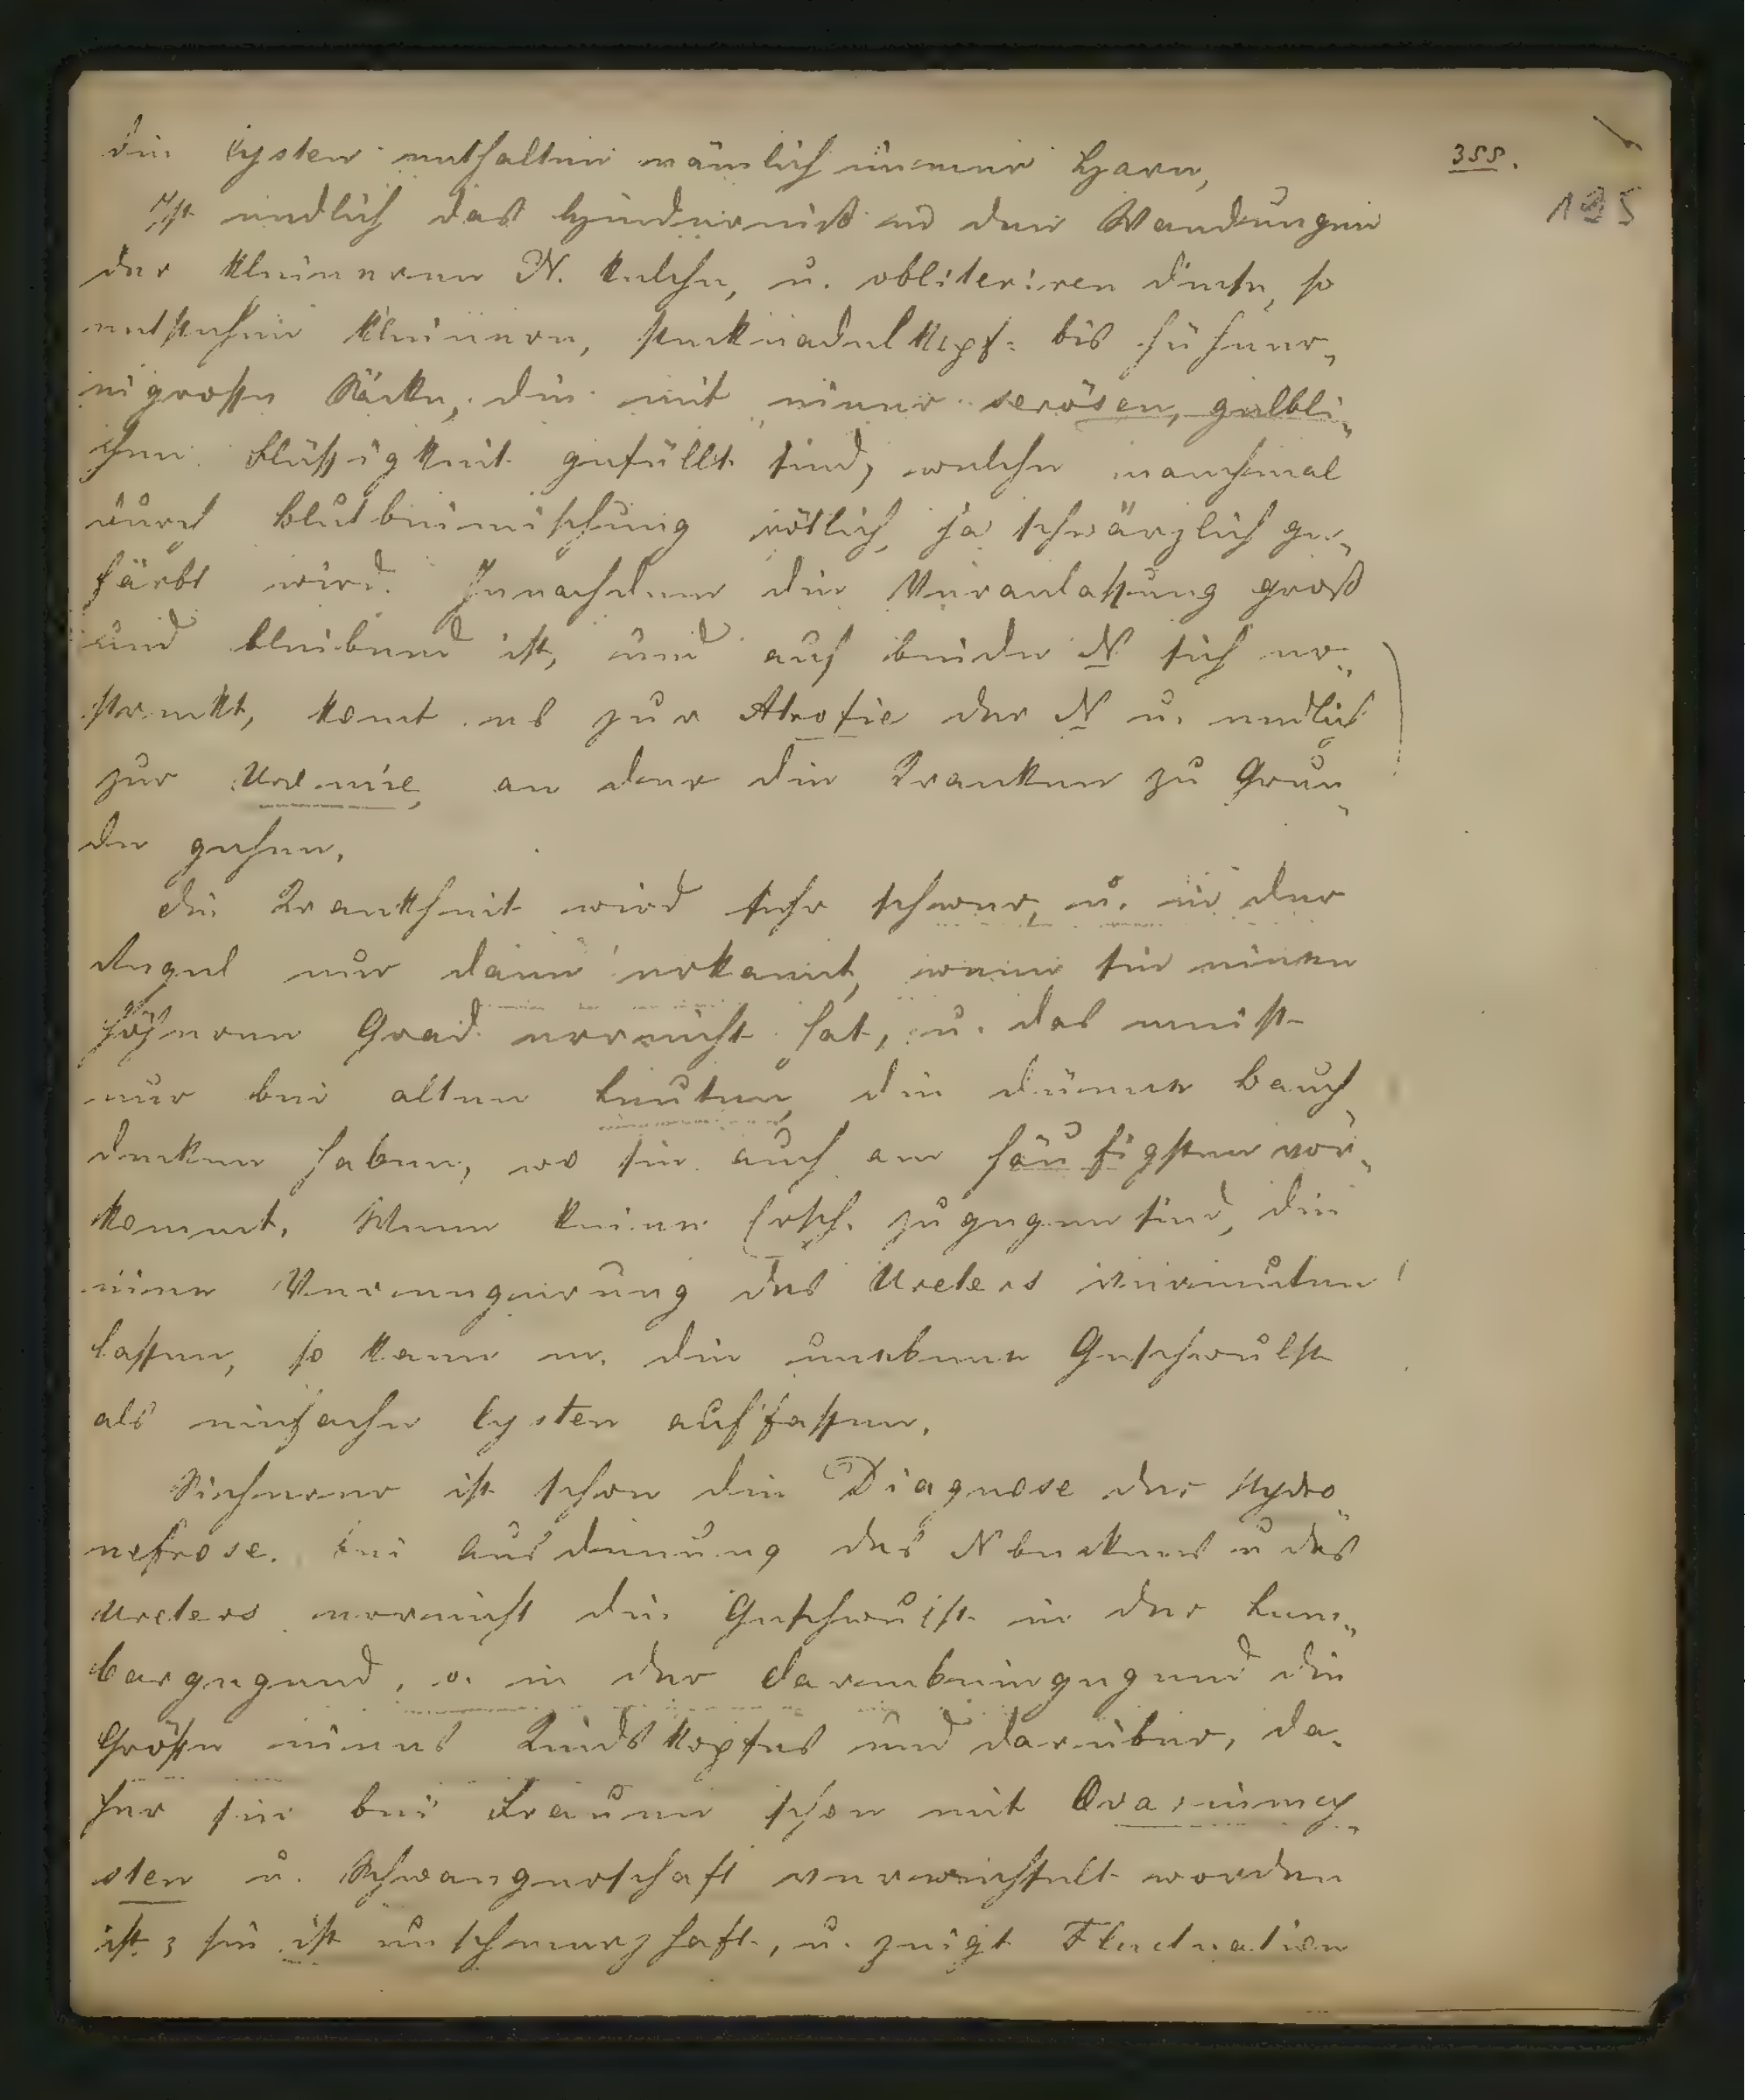 die Cysten enthalten nämlich immer Harn,
355.
Ist endlich das Hinderniß in den Wandungen
125
der kleineren N. kelche, u. obliteriren diese, so
entstehen kleinere, stecknadelkopf- bis hühner-
eigrosse Säcke, die mit einer serösen, gelbli-
chen Flüssigkeit gefüllt sind, welche manchmal
durch Blutbeimischung rötlich, ja schwärzlich ge-
färbt wird. Jenachdem die Veranlassung groß
und bleibend ist, und auf beide N sich er-
streckt, komt es zur Atrofie der N u. endlich
zur Uremie, an der die Kranken zu Grun-
de gehen.
Die Krankheit wird sehr schwer, u. in der
Regel nur dann erkannt, wenn sie einen
höheren Grad erreicht hat, u. das meist
nur bei alten Leuten, die dünne Bauch-
decken haben, wo sie auch am häufigsten vor-
kommt. Wenn keine Ersch. zugegen sind, die
eine Verengerung des Ureters vermuten
lassen, so kann m. die unebene Geschwulst
als einfache Cysten auffassen.
Sicherer ist schon die Diagnose der Hydro
nefrose. Bei Ausdenung des N beckens u des
Ureters erreicht die Geschwulst in der Lum-
bargegend, o. in der Darmbeingegend die
Größe eines Kindskopfes und darüber, da-
her sie bei Frauen schon mit Ovariumcy-
sten u. Schwangerschaft verwechselt worden
ist; sie ist unschmerzhaft, u. zeigt Fluctuation